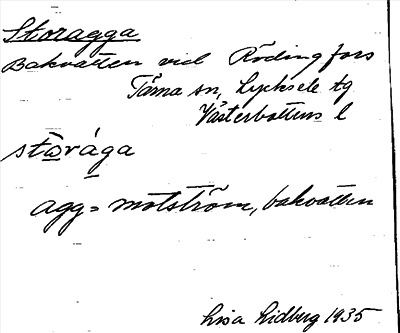 Storagga
Bakvatten vid Rödingfors
Tärna sn, Lycksele tg
Västerbottens l
stωrága
agg = motström, bakvatten
Lisa Lidberg 1935